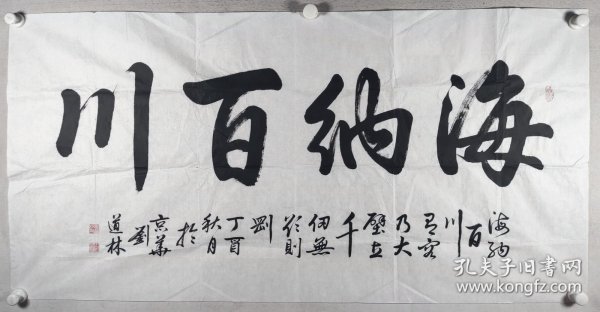 海纳百川
海纳
百
川
有容
乃大
壁立
千
仞無
欲則
剛
丁酉
秋月
於
京華
劉
道林
孔夫子旧书网
www.kongfz.com